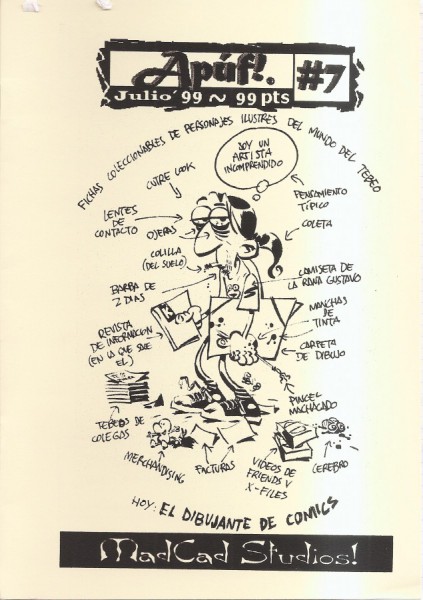 Apúf!.
#7
Julio'99 ~ 99 pts
FICHAS COLECCIONABLES DE PERSONAJES ILUSTRES DEL MUNDO DEL TEBEO
SOY UN
ARTISTA
INCOMPRENDIDO
CUTRE LOOK
PENSAMIENTO
TÍPICO
LENTES
DE
CONTACTO
OJERAS
COLETA
COLILLA
(DEL SUELO)
BARBA DE
2 DIAS
CAMISETA DE
LA RANA GUSTAVO
REVISTA
DE INFORMACION
(EN LA QUE SALE
EL)
MANCHAS
DE
TINTA
CARPETA
DE DIBUJO
PINCEL
MACHACADO
TEBEOS DE
COLEGAS
MERCHANDISING
FACTURAS
VIDEOS DE
FRIENDS Y
X-FILES
CEREBRO
HOY: EL DIBUJANTE DE COMICS
MadCad Studios!